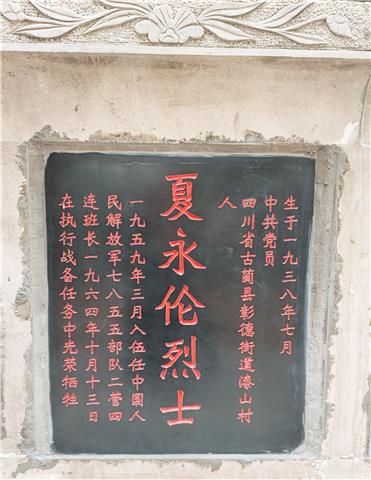 生于一九三八年七月
中共党员
四川省古蔺县彰德街道漆山村
人
夏永伦烈士
一九五九年三月入伍任中國人
民解放军七八五五部队二营四
连班长一九六四年十月十三日
在执行战备任务中光荣牺牲